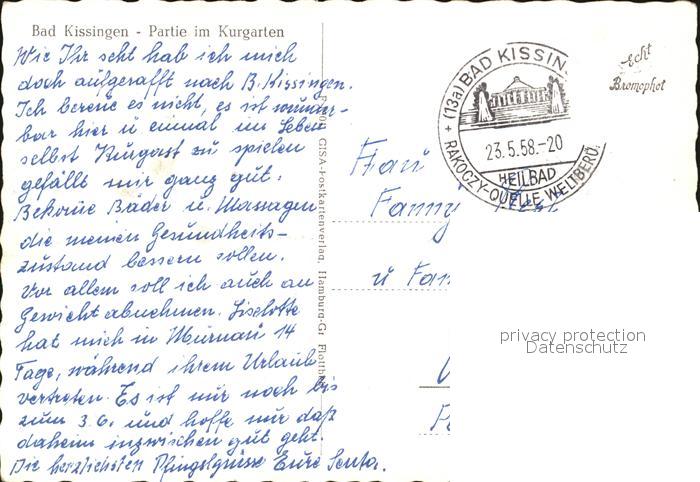 Bad Kissingen - Partie im Kurgarten
Wie Ihr seht hab ich mich
doch aufgerafft nach B. Kissingen.
Ich bereue es nicht, es ist wunder-
bar hier u einmal im Leben
selbst Kurgast zu spielen
gefällt mir ganz gut.
Bekomme Bäder u. Massagen
die meinen Gesundheits-
zustand bessern sollen.
Vor allem soll ich auch an
Gewicht abnehmen. Liselotte
hat mich in Murnau 14
Tage, während ihrem Urlaub
vertreten. Es ist nur noch bis
zum 3.6. und hoffe nur daß
daheim inzwischen gut geht.
Die herzlichsten Pfingstgrüsse Eure Senta.
GISA-Postkartenverlag, Hamburg-Gr. Flottbek
+ (13a) BAD KISSIN
23.5.58.-20
HEILBAD
RAKOCZY-QUELLE WELTBERÜ
Echt
Bromophot
Frau
Fanny
u Fan
privacy protection
Datenschutz